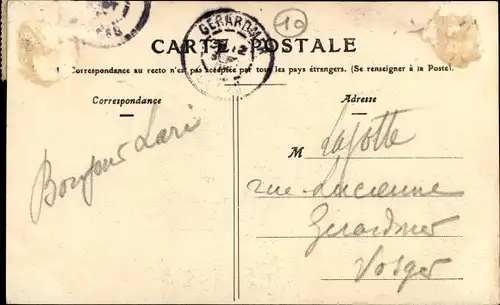 10
GERARDM
CARTE POSTALE
Correspondance au recto n'est pas acceptée par tous les pays étrangers. (Se renseigner à la Poste).
Correspondance
Adresse
Bonjour
M Lajotte
rue
Gerardmer
Vosges